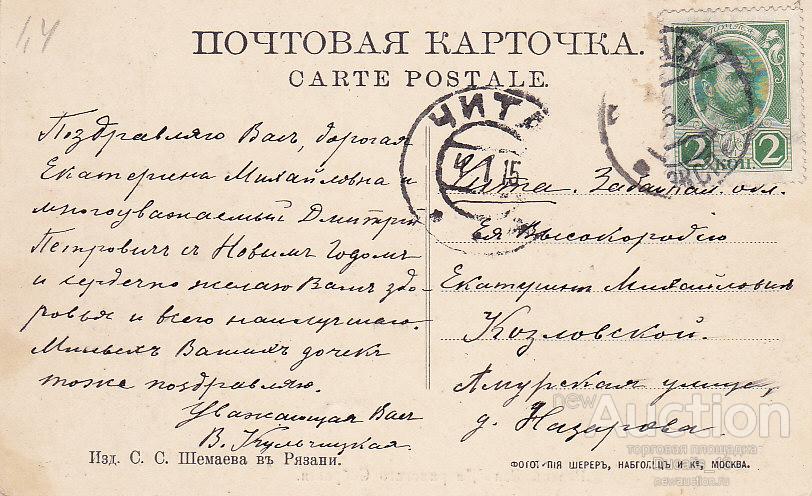 1,4
ПОЧТОВАЯ КАРТОЧКА.
CARTE POSTALE.
ЧИТА
4 1 15
2 КОП 2
Поздравляю Васъ, дорогая
Екатерина Михайловна и
многоуважаемый Дмитрій
Петровичъ съ Новымъ Годомъ
и сердечно желаю Вамъ здо-
ровья и всего наилучшаго.
Милыхъ Вашихъ дочекъ
тоже поздравляю.
Уважающая Васъ
В. Кульчицкая
Чита. Забайкал. обл.
Ея Высокородію
Екатеринѣ Михайловнѣ
Козловской.
Амурская улица,
д. Назарова.
Изд. С. С. Шемаева въ Рязани.
ФОТОТИПІЯ ШЕРЕРЪ, НАБГОЛЬЦЪ И Кº, МОСКВА.
newAuction
торговая площадка
newauction.ru